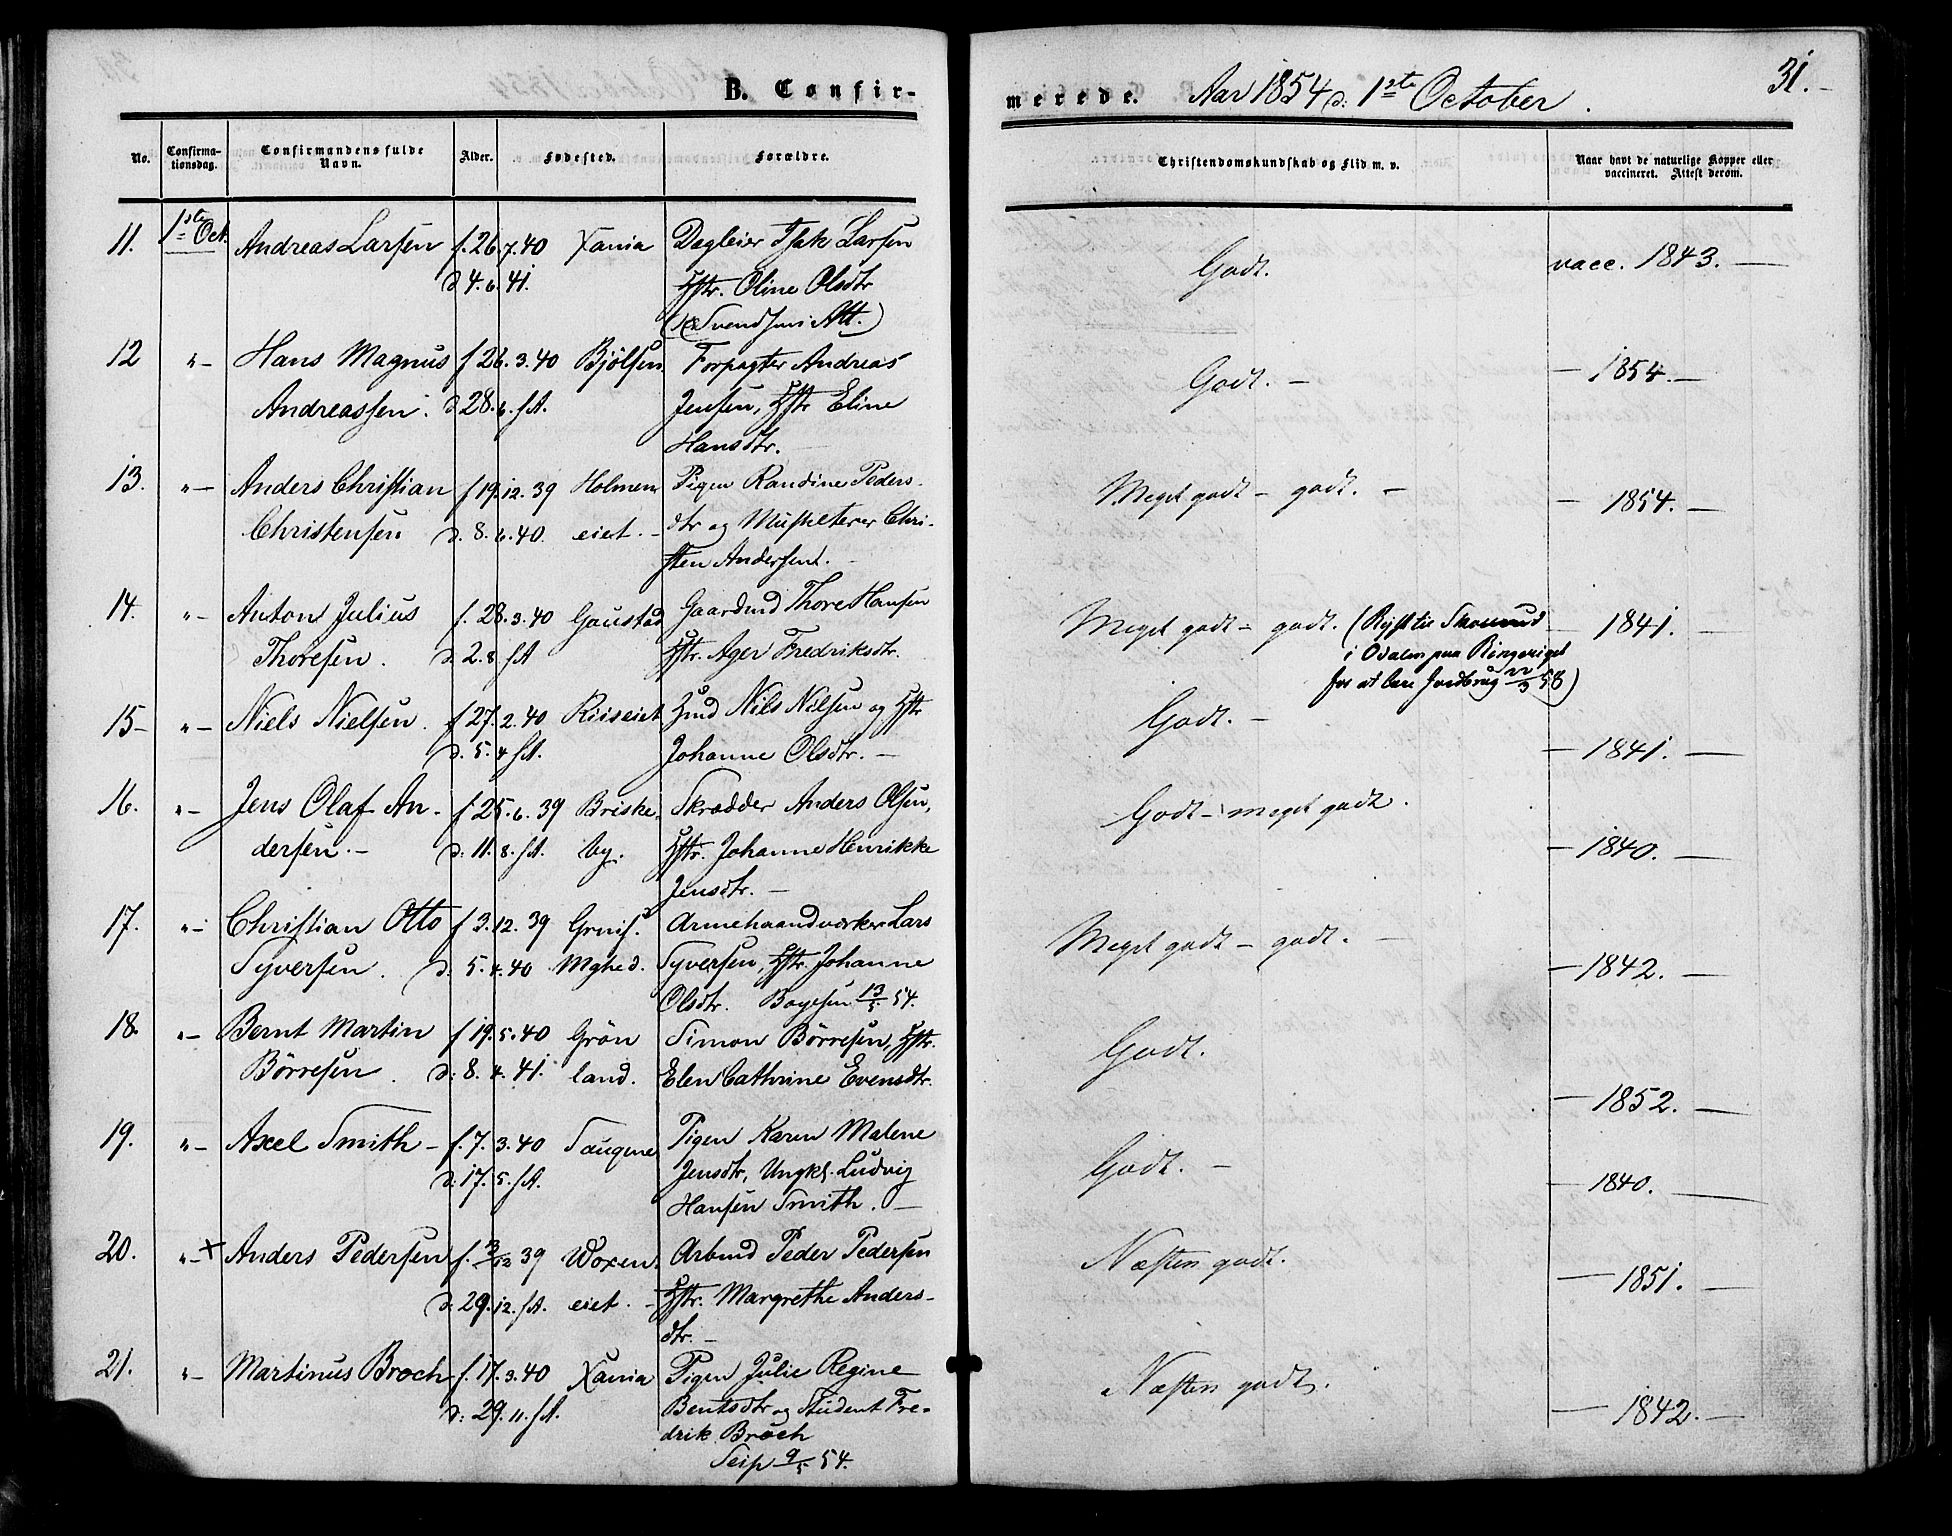 B. Confir-
merede. Aar 1854 d: 1ste October. 31.-
No. Confirma-tionsdag. Confirmandens fulde Navn. Alder. Fødested. Forældre. Christendomskundskab og Flid m. v. Naar havt de naturlige Kopper eller vaccineret. Attest derom.
11. 1ste Oct. Andreas Larsen f. 26.7.40 Xania Dagleier Isak Larsen Godt. vacc. 1843. -
d 4.6.41. Hstr. Oline Olsdtr
Svendsens Att.)
12 "- Hans Magnus f 26.3.40 Bjølsen Forpagter Andreas Godt. - - 1854. -
Andreassen. d. 28.6. s.A. Jensen, Hstr Eline
Hansdtr. -
13. "- Anders Christian f 19.12.39 Holmen Pigen Randine Peders- Meget godt - godt. - - 1854. -
Christensen d. 8.6.40. eiet. - dtr og Musketerer Chri-
sten Andersen. -
14. "- Anton Julius f. 28.3.40 Gaustad Gaardmd Thore Hansen Meget godt - godt. (Reist til - 1841. -
Thoresen. d. 2.8 s.A Hstr. Fredriksdtr. i paa Ringeriget
for at lære Jordbrug 58)
15- "- Niels Nielsen. f 27.2.40 Riiseiet Hmd Nils Nilsen og Hstr Godt. - - 1841. -
d. 5.4 s.A. Johanne Olsdtr. -
16. "- Jens Olaf An- f 25.6.39 Briske- Skrædder Anders Olsen, Godt - meget godt. - 1840. -
dersen. - d. 11.8. s.A. by. Hstr. Johanne Henrikke
Jensdtr. -
17. "- Christian Otto f 3.12.39 Lars Meget godt - godt. - - 1842. -
Syversen. d. 5.4.40 Mghed. Syversen, Hstr. Johanne
Olsdtr. Boyesen 13/5 54.
18. "- Bernt Martin f 19.5.40 Grøn Simon Børresen, Hstr. Godt. - 1852. -
Børresen. d: 8.4.41. land. Elen Cathrine Evensdtr.
19. "- Axel Smith - f. 7.3.40 Saugene Pigen Karen Malene Godt. - - 1840. -
d: 17.5. s.A. Jensdtr, Ungkl. Ludvig
Hansen Smith. -
20. "- + Anders Pedersen f. 39 Woxen- Arbmd Peder Pedersen Næsten godt. - 1851. -
d: 29.12. s.A. eiet. - Hstr. Margrethe Anders-
dtr. -
21. "- Martinus Broch f. 17.3.40 Xania Pigen Julie Regine Næsten godt. - 1842. -
d: 29.11. s.A. Bentsdtr og Student Fre-
drik Broch
Seip 9/5 54.